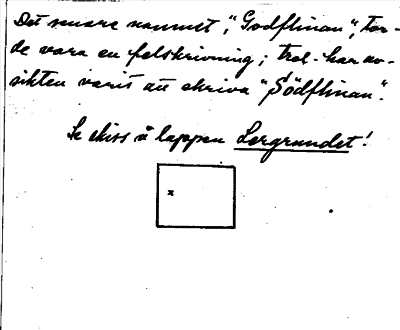 Det senare namnet, "Godflinan", tor-
de vara en felskrivning; trol. har av-
sikten varit att skriva "Södflinan".
Se skiss å lappen Lergrundet!
x